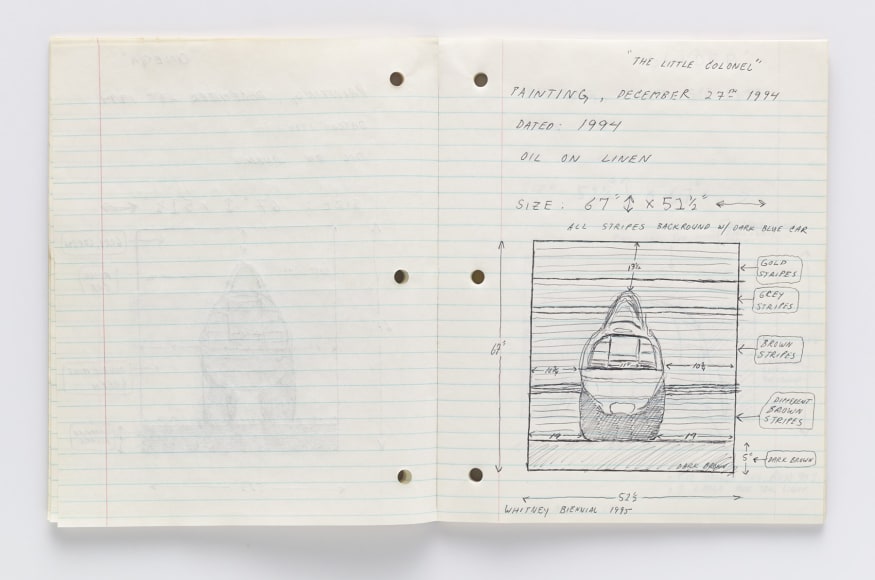 "THE LITTLE COLONEL"
PAINTING, DECEMBER 27TH 1994
DATED: 1994
OIL ON LINEN
SIZE: 67" X 51½"
ALL STRIPES BACKROUND W/ DARK BLUE CAR
GOLD
STRIPES
13½
GREY
STRIPES
67"
BROWN
STRIPES
11"
10¾
DIFFERENT
BROWN
STRIPES
19
19
5"
DARK BROWN
DARK BROWN
52½
WHITNEY BIENNIAL 1995